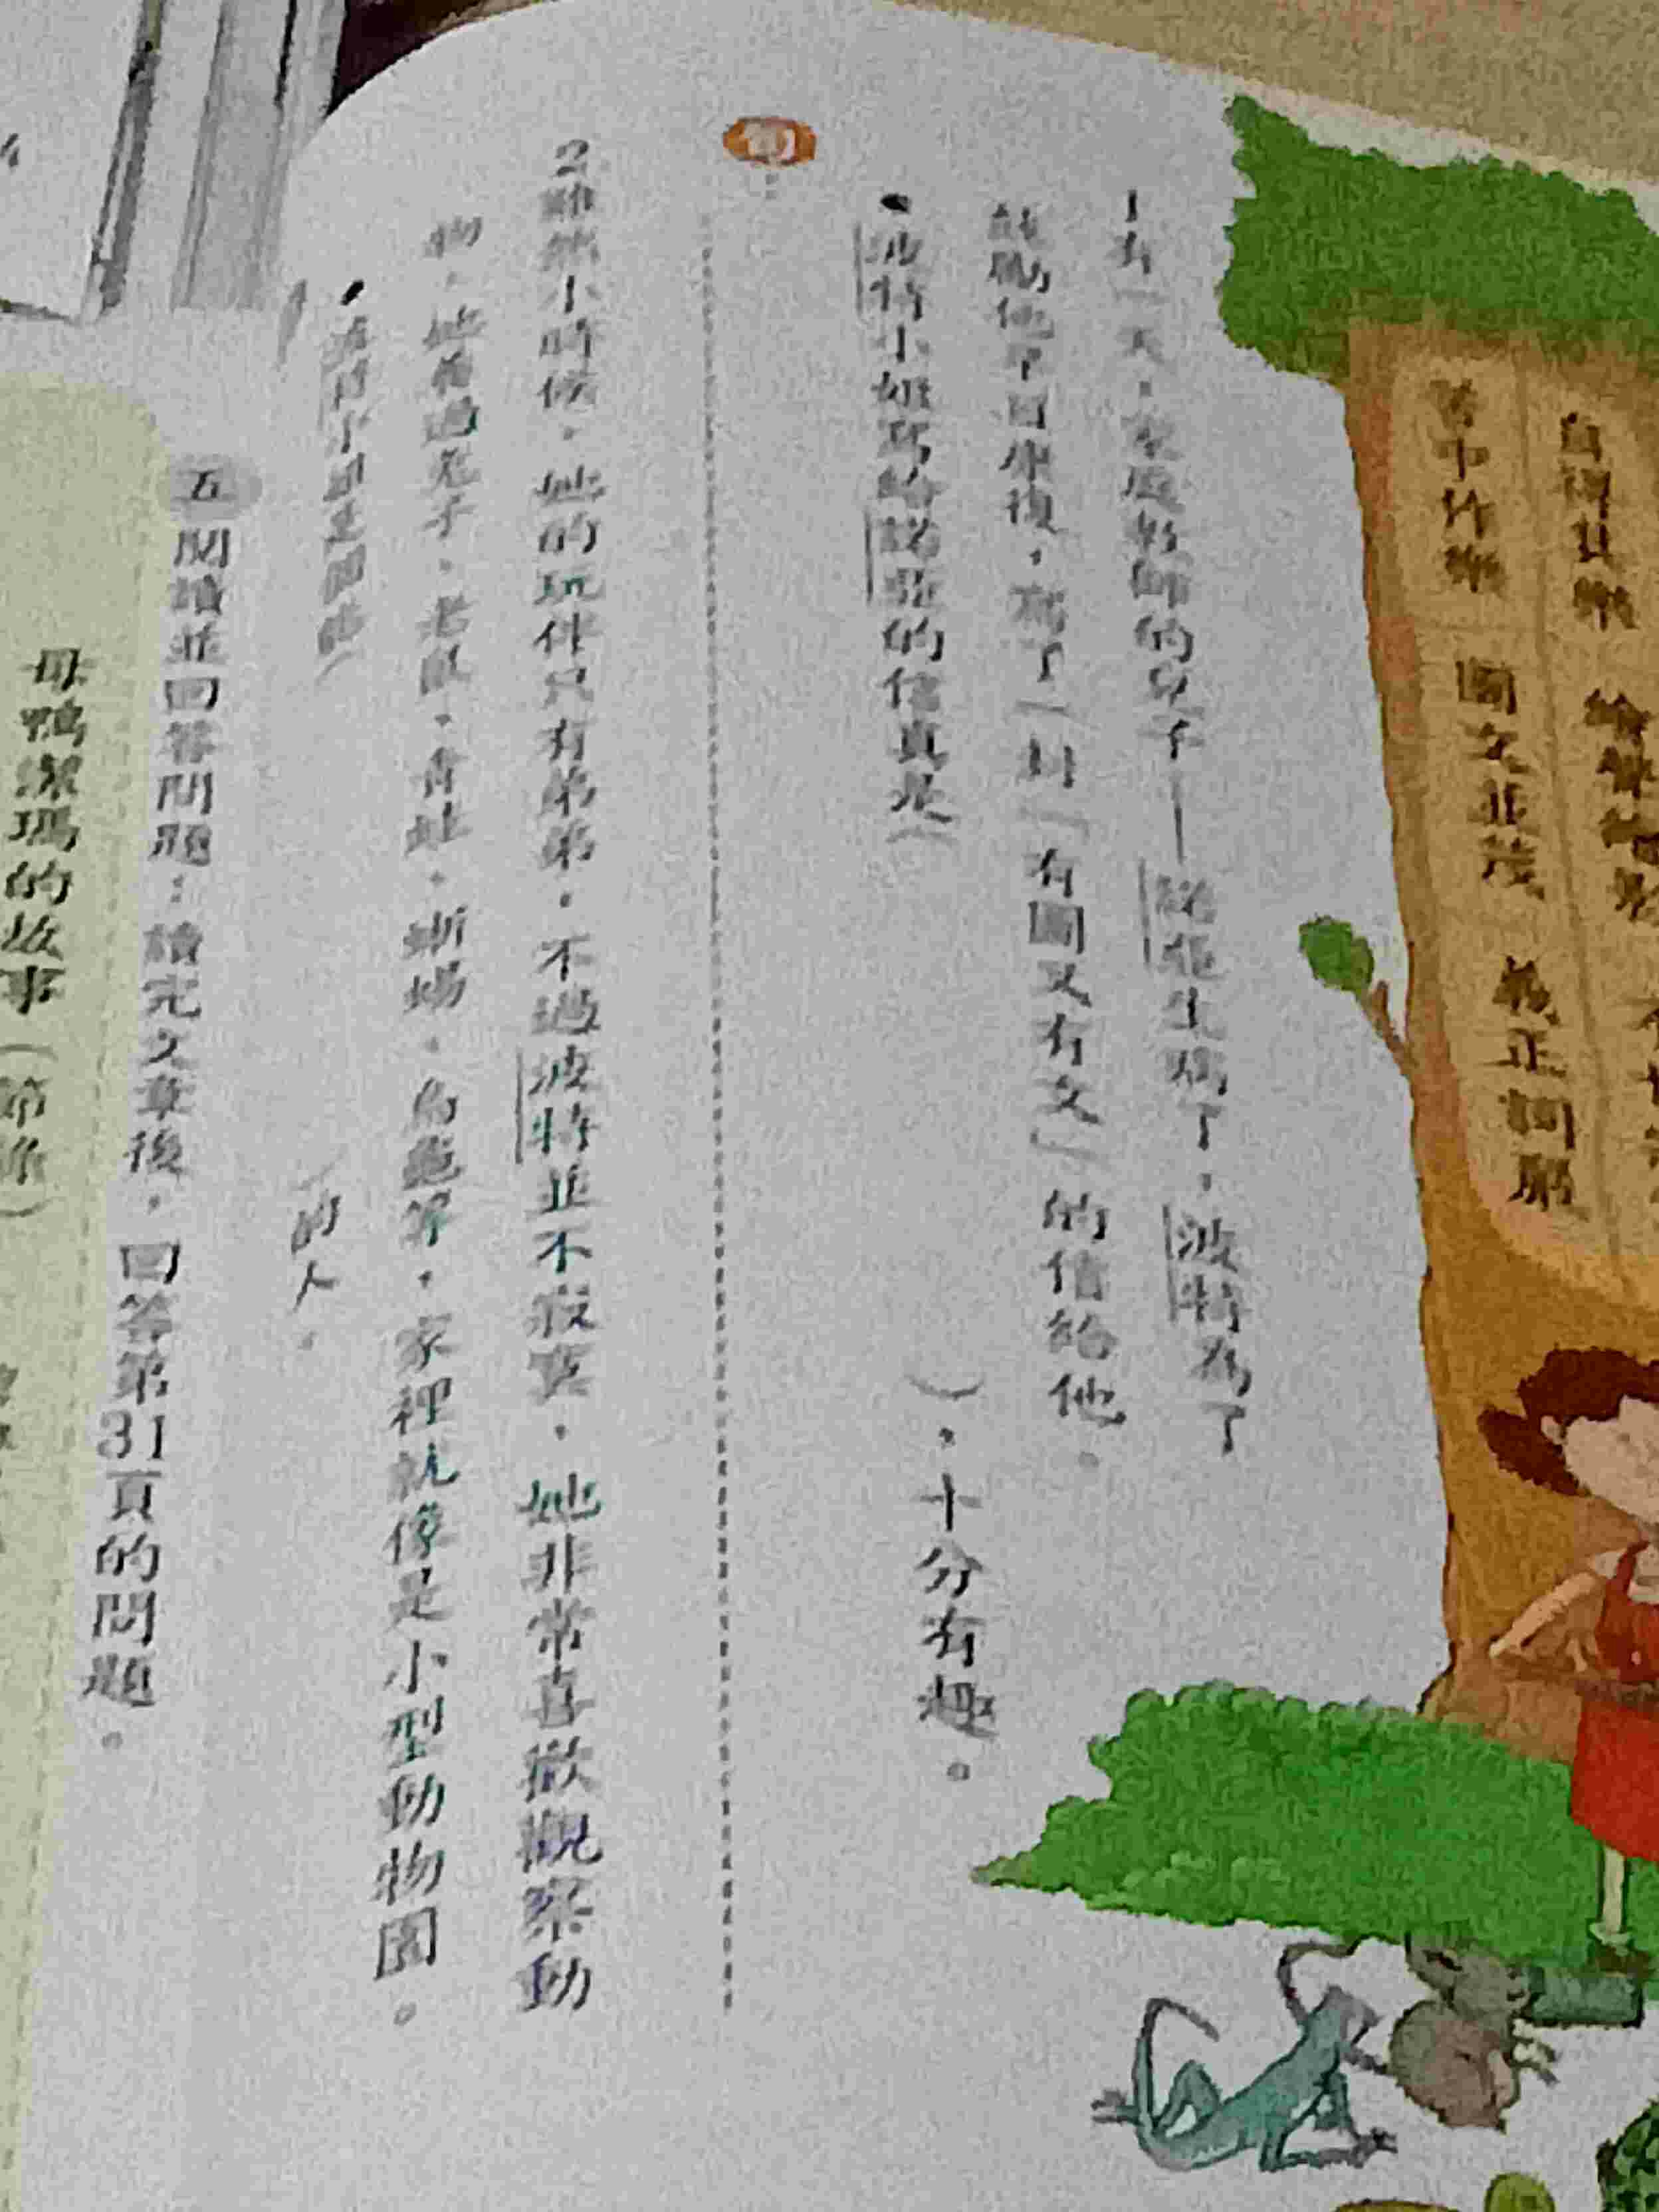 自得其樂
苦中作樂 圖文並茂 貨真正
1有一天,家庭教師的兒子——諾亞生病了,波特為了
鼓勵他早日康復,寫了一封「有圖又有文」的信給他。
波特小姐寫給諾亞的信真是( ),十分有趣。
2雖然小時候,她的玩伴只有弟弟,不過波特並不寂寞,她非常喜歡觀察動
物,她養過兔子、老鼠、青蛙、蜥蜴、烏龜等,家裡就像是小型動物園。
波特小姐是個能( )的人。
五 閱讀並回答問題:讀完文章後,回答第31頁的問題。
母鴨潔瑪的故事(節錄)